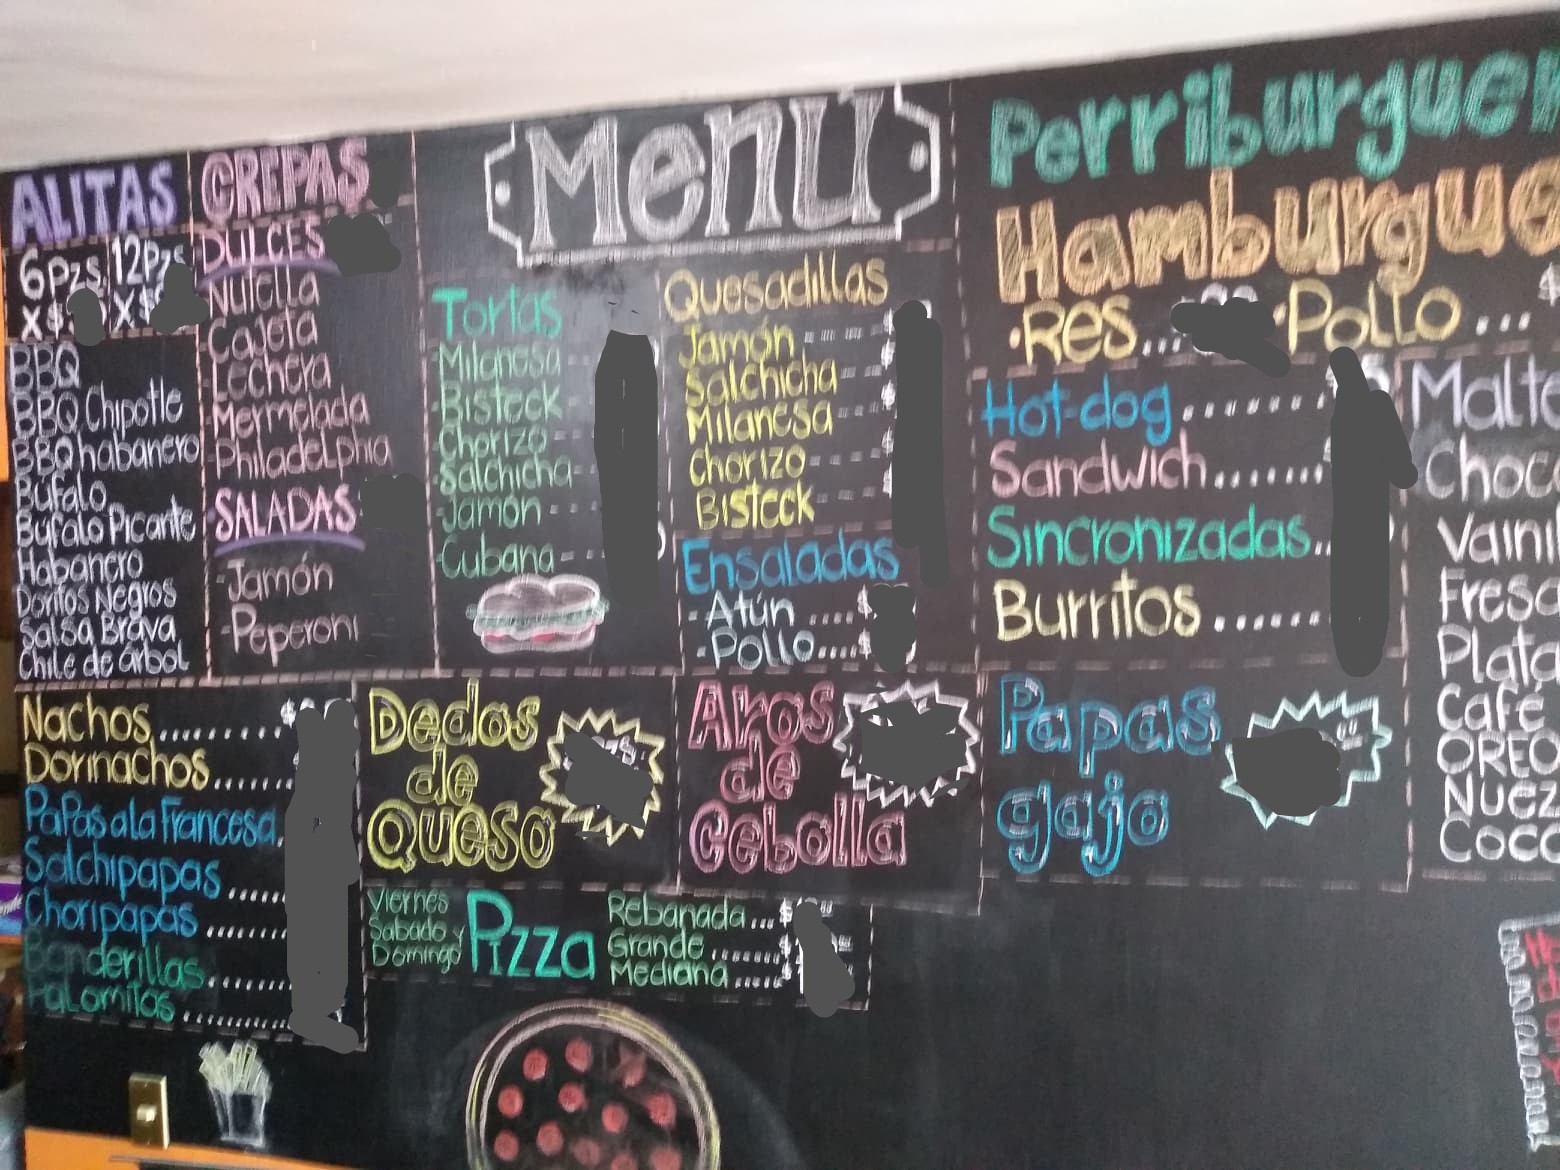 Menu
ALITAS
6Pzs 12Pzs
X$ X$
BBQ
BBQ Chipotle
BBQ habanero
Bufalo
Bufalo Picante
Habanero
Doritos Negros
Salsa Brava
Chile de árbol
CREPAS
DULCES
Nutella
Cajeta
Lechera
-Mermelada
-Philadelphia
SALADAS
-Jamón
-Peperoni
Tortas
-Milanesa
-Bisteck
-Chorizo
-Salchicha
-Jamón
-Cubana
Quesadillas
Jamón
Salchicha
Milanesa
Chorizo
Bisteck
Ensaladas
-Atún ....
-Pollo....
Hamburgue
·RES... ·POLLO ... $
Hot-dog ........
Sandwich.......
Sincronizadas..
Burritos ......
Malte
Choco
Vaini
Fresc
Plata
Café
OREO
Nuez
Coco
Nachos ........ $
Dorinachos ......
Papas a la Francesa
Salchipapas .....
Choripapas .......
Banderillas ........
Palomitas ..........
Dedos
de
Queso
Aros
de
Cebolla
Papas
gajo
Viernes
Sabado y
Domingo
Pizza
Rebanada ... $
Grande ...... $
Mediana ..... $